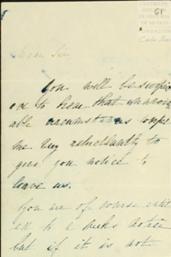 61
Dear Sir
You will be surpris
ed to hear that unavoid
able circumstances compel
me very reluctantly to
give you notice to
leave us.
You are of course entit
led to a weeks notice
but if it is not